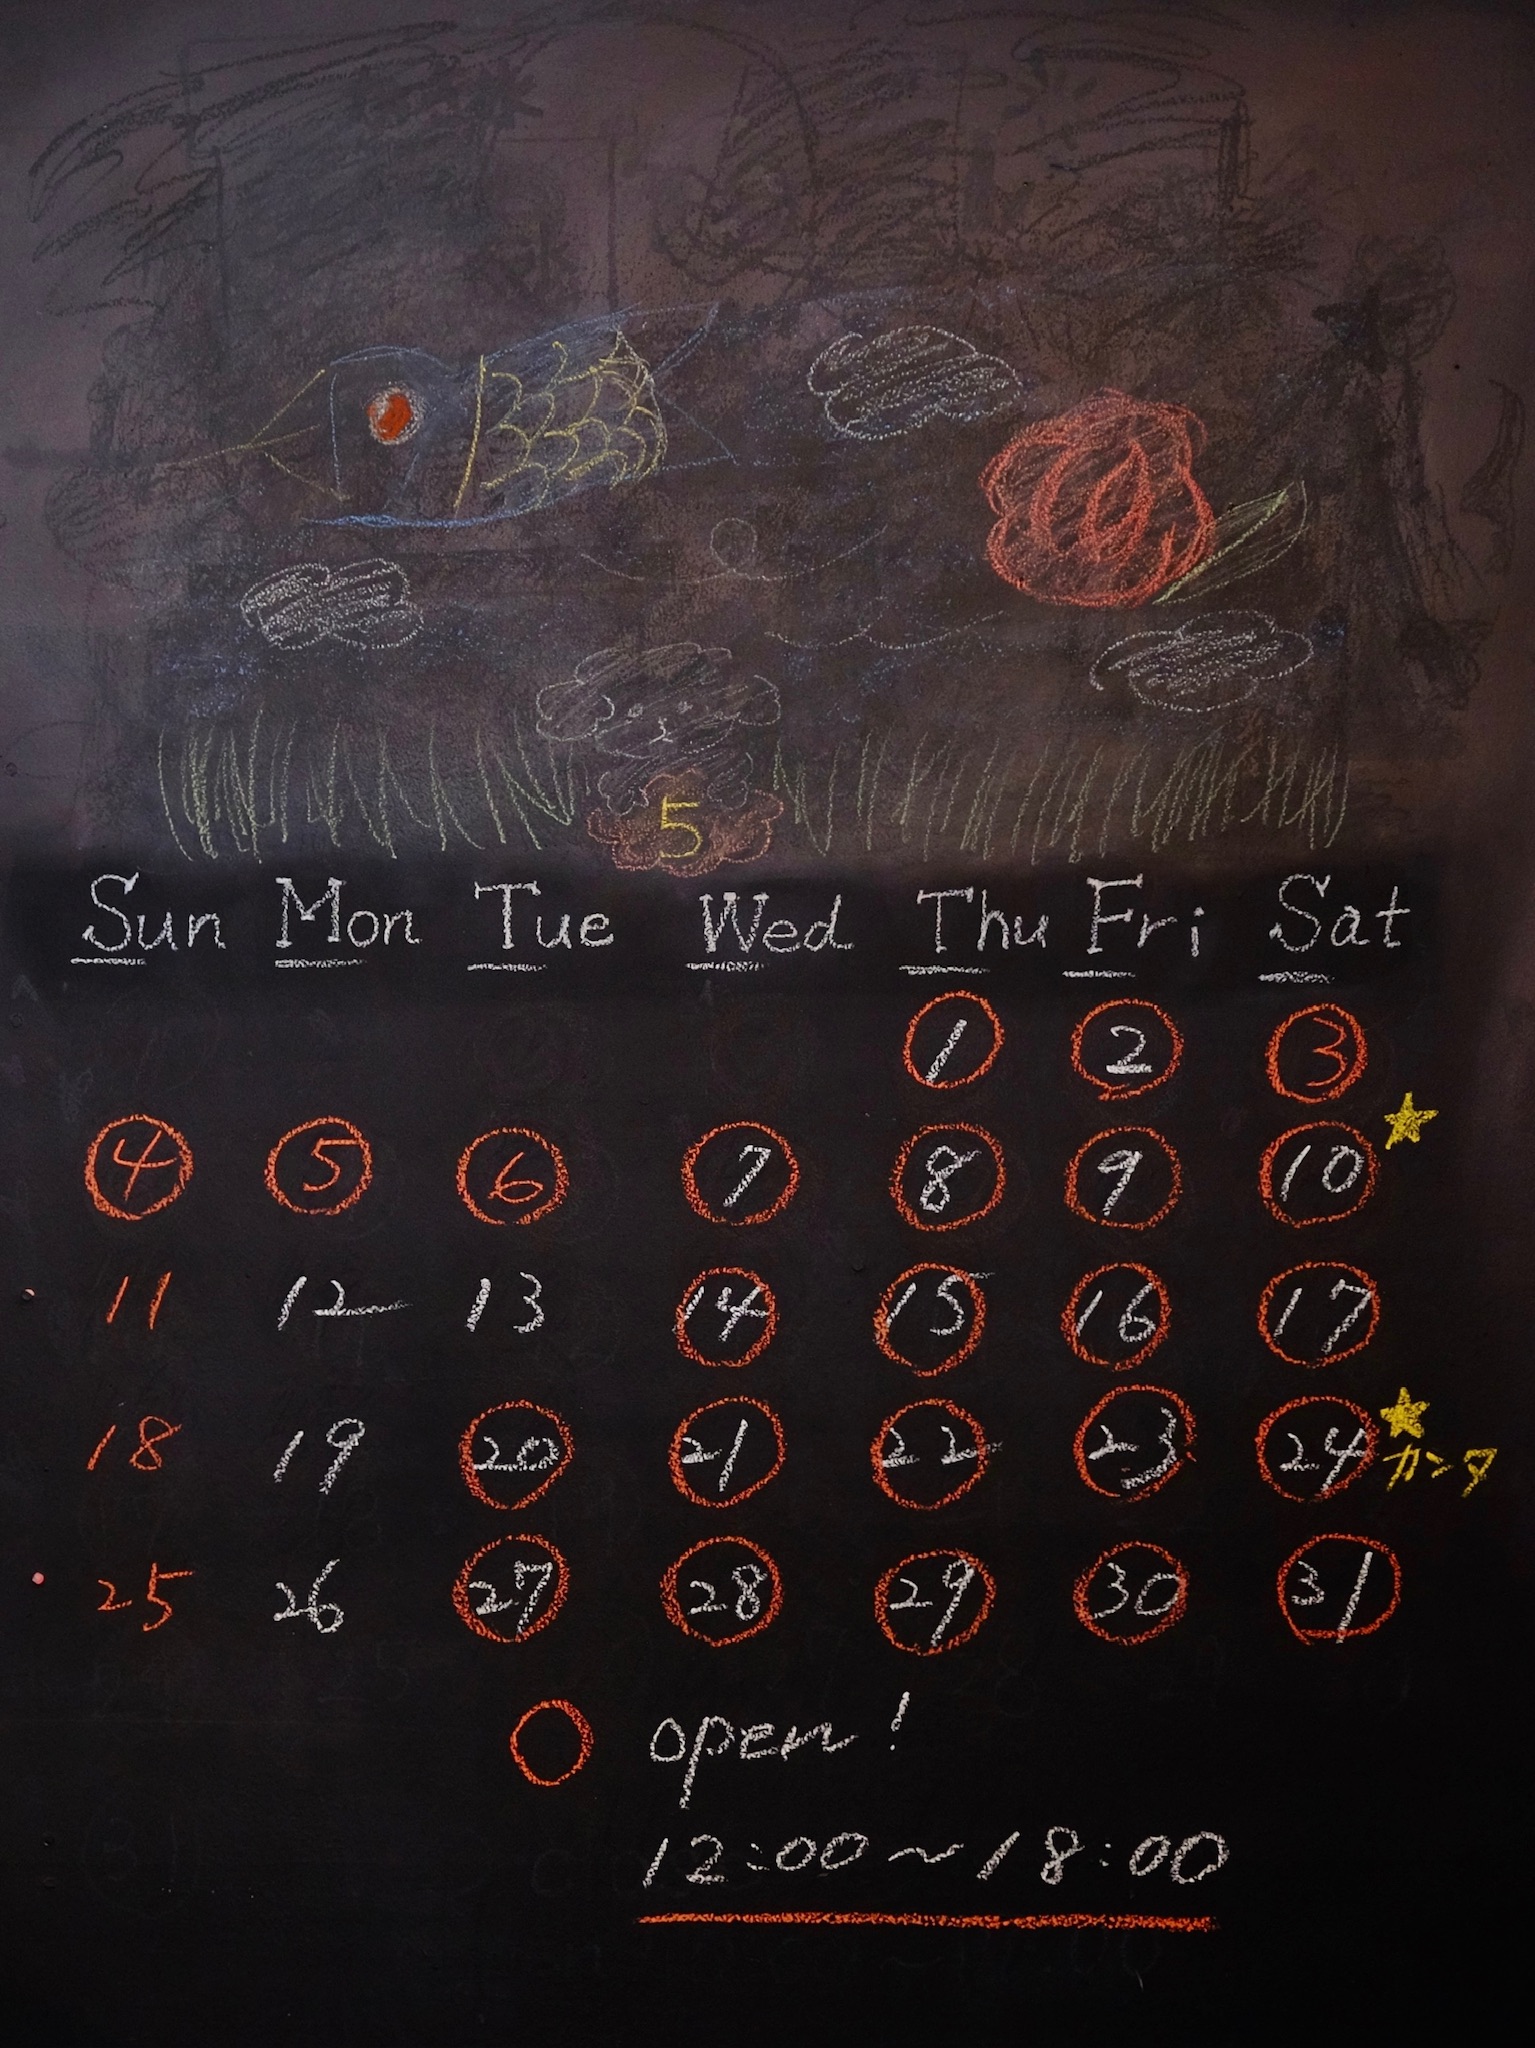 5
Sun Mon Tue Wed Thu Fri Sat
1 2 3
4 5 6 7 8 9 10 ★
11 12 13 14 15 16 17
18 19 20 21 22 23 24 ★
カンタ
25 26 27 28 29 30 31
○ open!
12:00~18:00